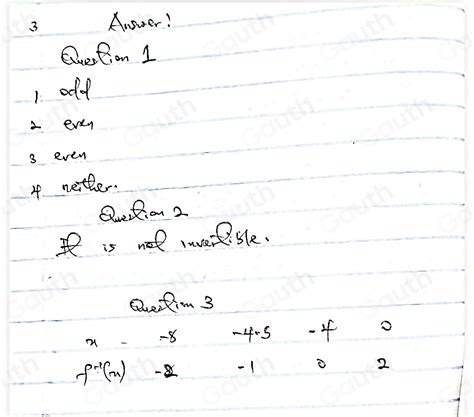 3 Answer!
Question 1
1. odd
2 even
3 even
4 neither.
Question 2
It is not invertible.
Question 3
x - -8 -4.5 -4 0
f⁻¹(x) -2 -1 0 2